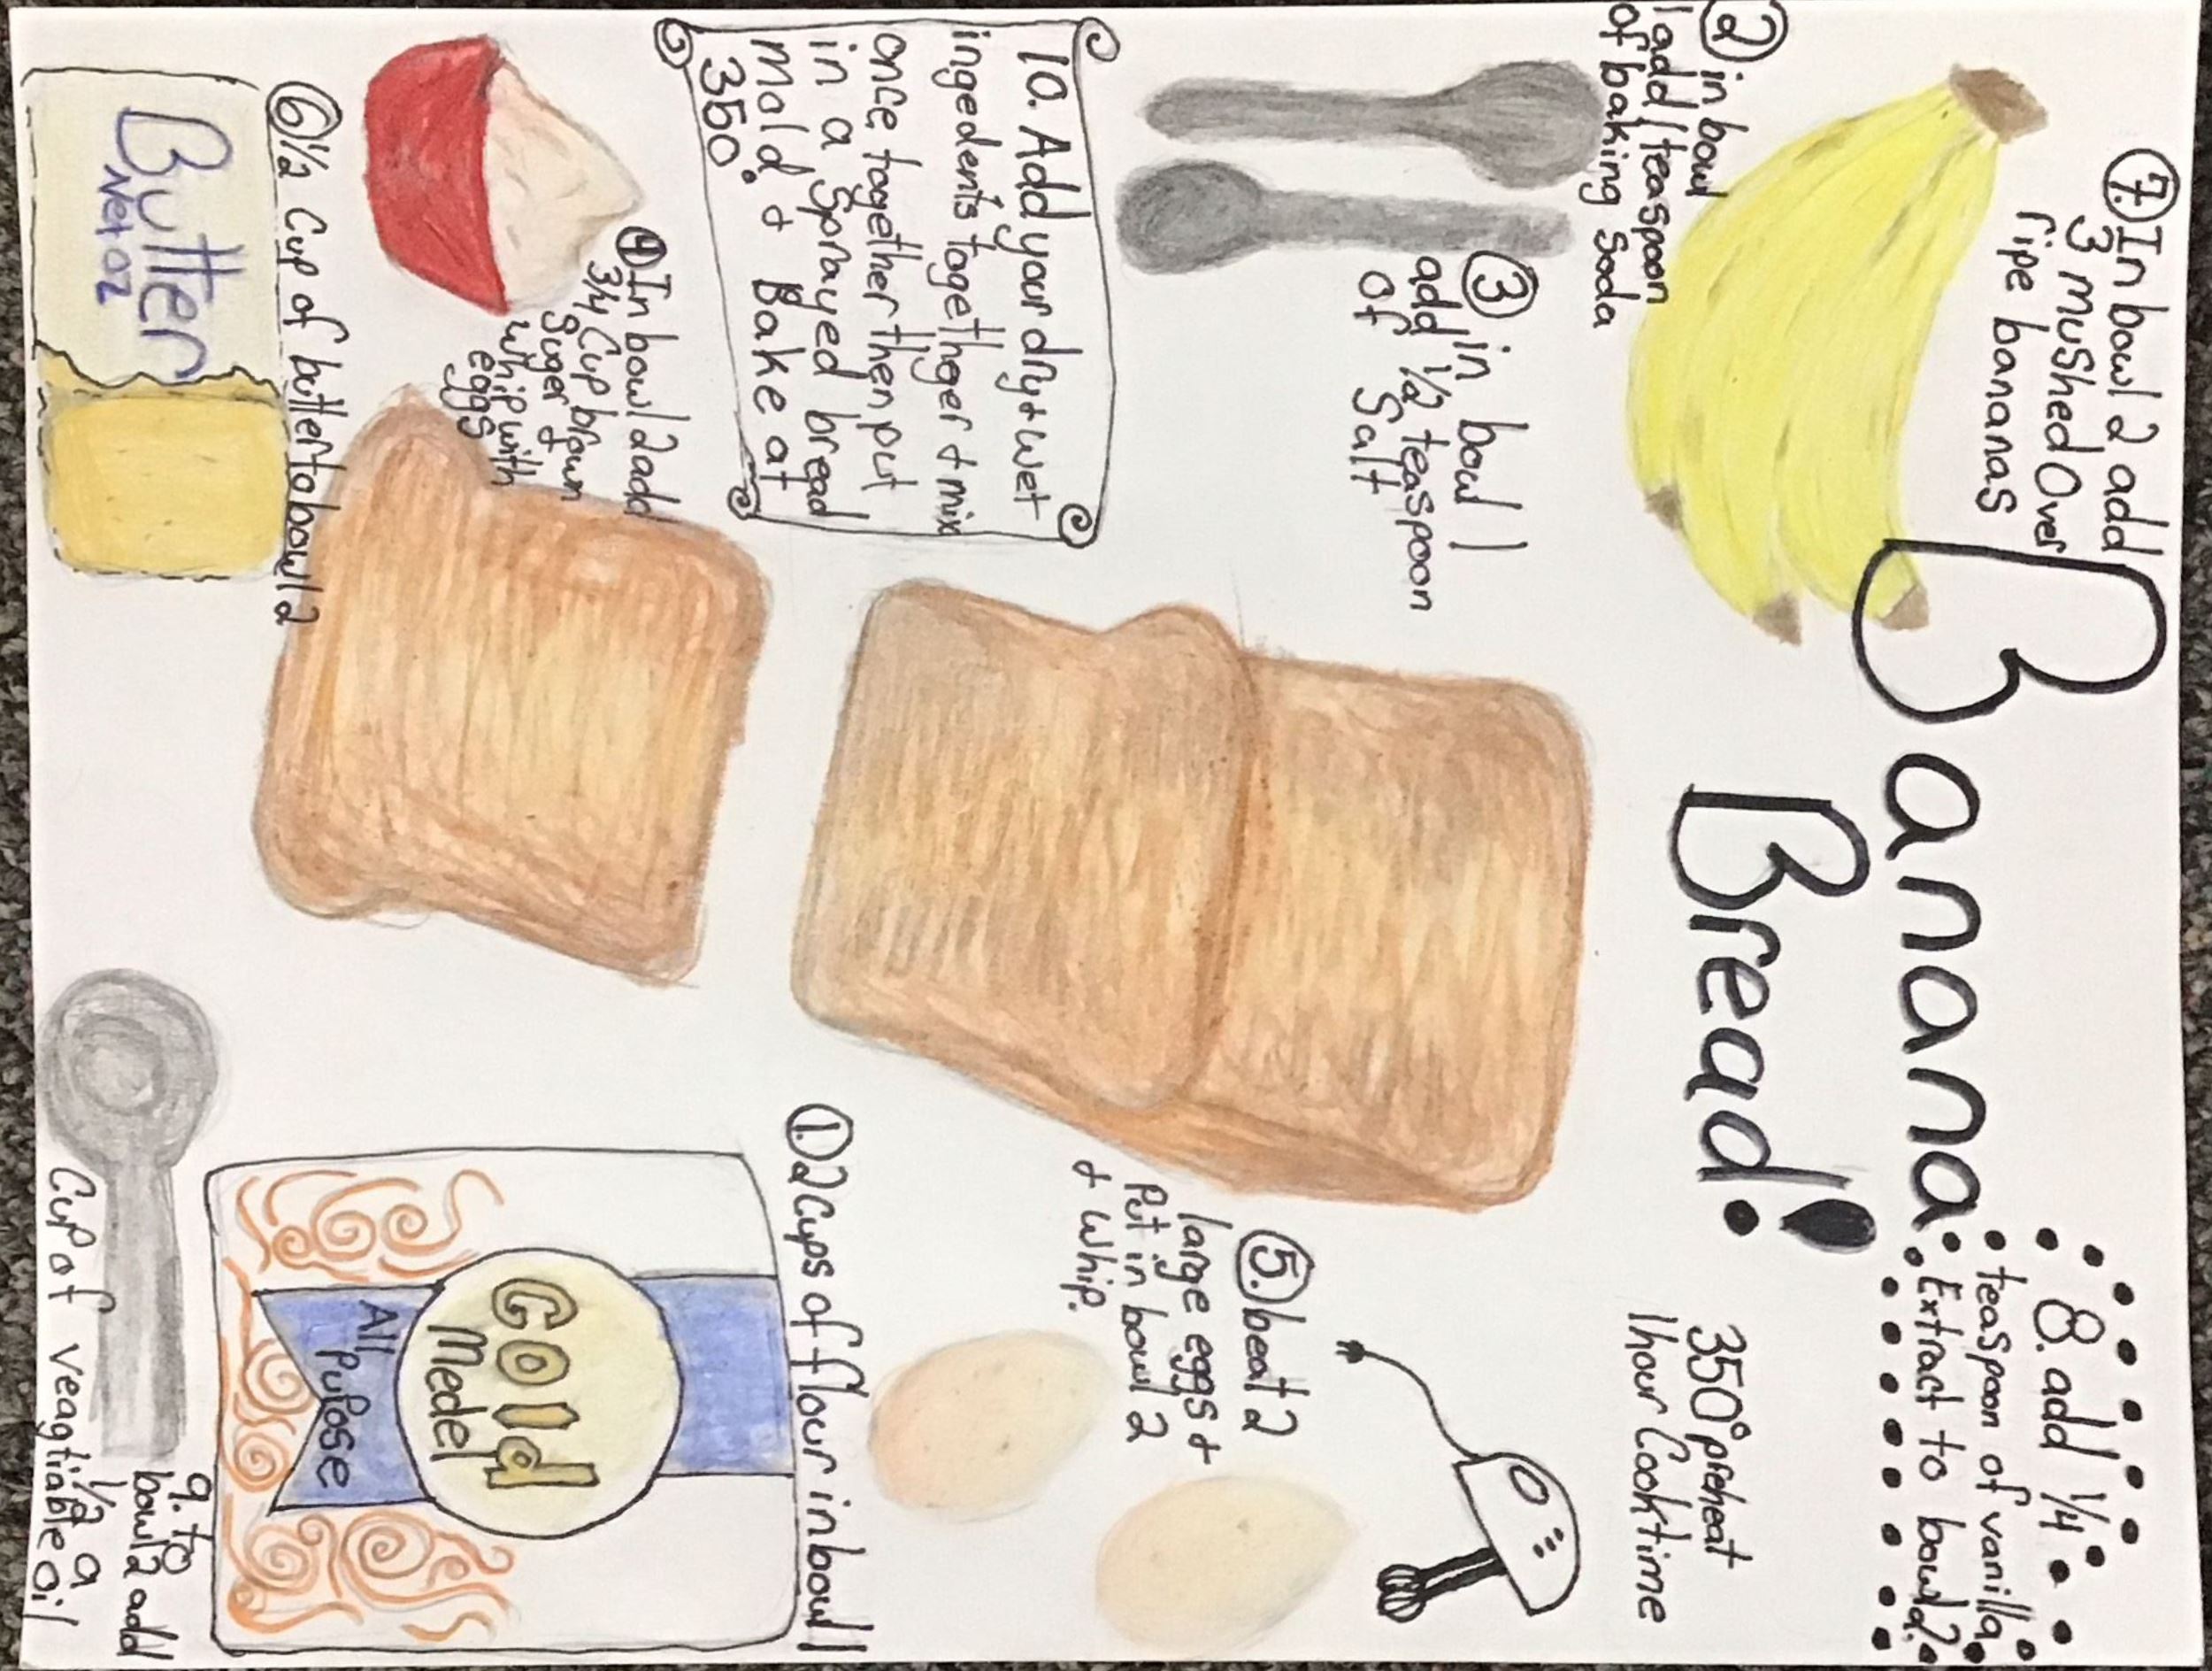 Banana
Bread!
350° preheat
1hour Cooktime
①. 2 Cups of flour in bowl 1
Gold
Medel
All
Pupose
② in bowl
1 add 1 teaspoon
of baking soda
③ in bowl 1
add 1/2 teaspoon
of Salt
④ In bowl 2 add
3/4 Cup brown
Suger +
whip with
eggs
⑤. beat 2
large eggs +
Put in bowl 2
+ whip.
⑥ 1/2 Cup of butter to bowl 2
Butter
Net oz
⑦. In bowl 2 add
3 mushed Over
ripe bananas
8. add 1/4
teaspoon of vanilla
Extract to bowl 2
9. to
bowl 2 add
1/2 a
Cup of veagtiable oil
10. Add your dry + wet
ingedents togethger + mix
once together then put
in a Sprayed bread
mold + Bake at
350°